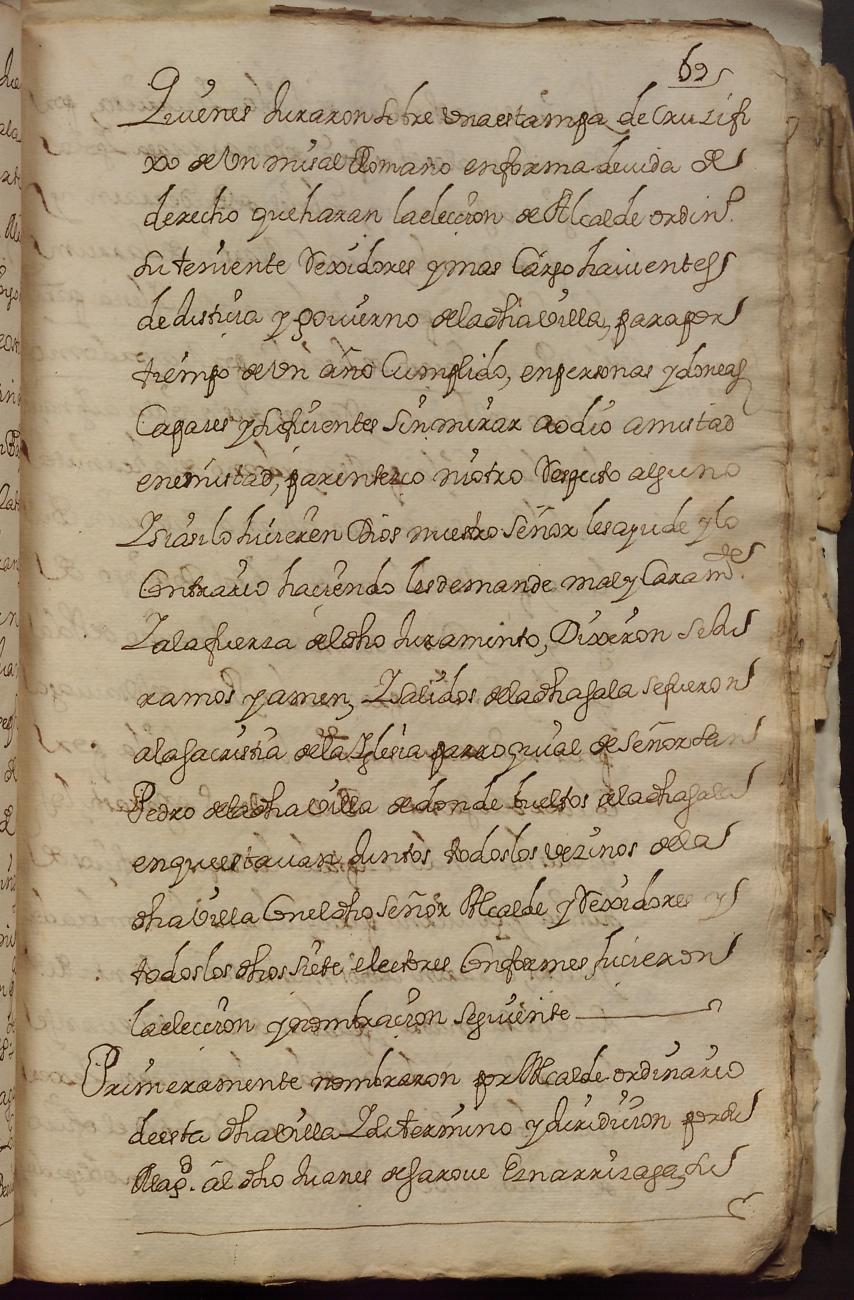 69
Quienes Juraron sobre una estampa de Cruzifi
xo de Un misal Romano en forma devida de
derecho que haran la eleccion de Alcalde ordin.º
su teniente Rexidores y mas Cargo haiuentes
de Justicia y gouierno de la dha Villa, para por
tiempo de Un año Cumplido, en personas ydoneas
Capaces y suficientes sin mirar a odio amistad
enemistad, parentesco ni otro Respecto alguno
Y si asi lo hicieren Dios nuestro Señor les ayude y lo
Contrario haciendo les demande mal y Caram.te
Y a la fuerza del dho Juramento, Dixeron si Ju
ramos y amen, Y salidos de la dha sala se fueron
a la sacristia de la Yglesia parroquial de señor san
Pedro de la dha Villa de donde bueltos a la dha sala
en que estauan Juntos todos los vezinos de la
dha Villa Con el dho Señor Alcalde y Rexidores y
todos los dhos siete electores Conformes hicieron
la eleccion y nombracion seguiente
Primeramente nombraron por Alcalde ordinario
de esta dha Villa Y su termino y Juridicion por su
Mag.d al dho Juanes de Garoue Eznarrizaga, su